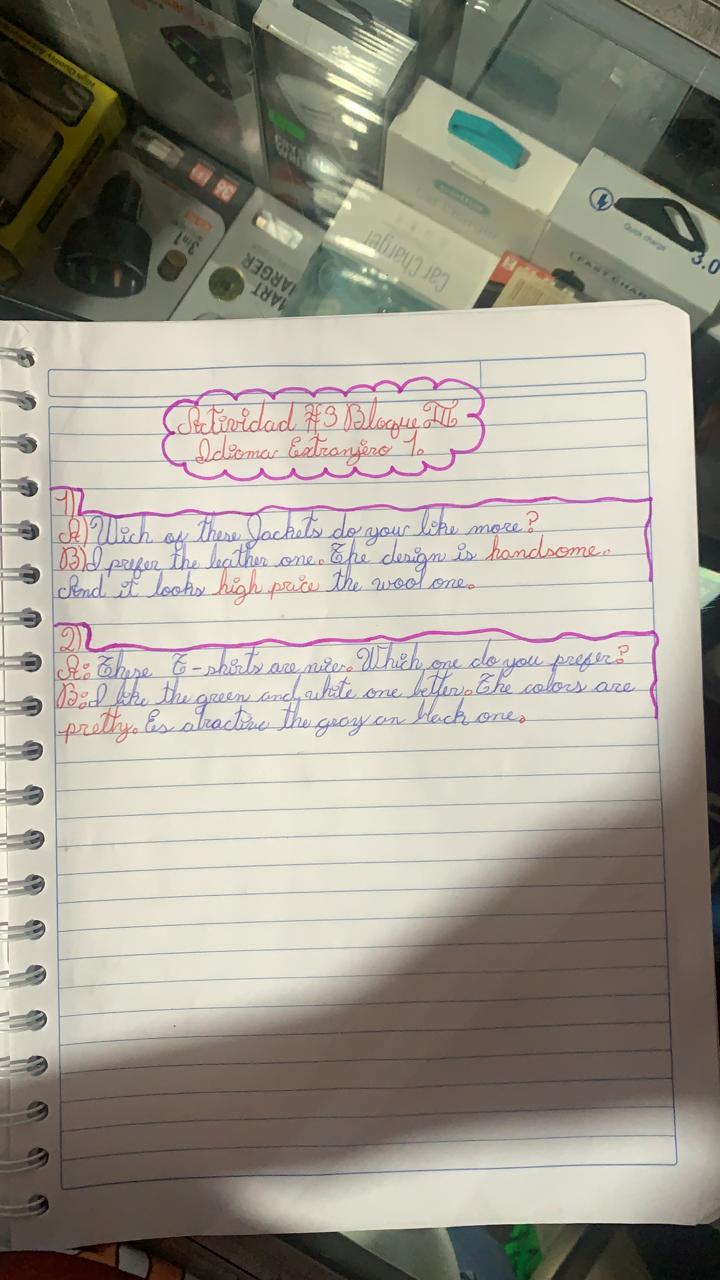 High Quality Au
38
3 in 1
MART
HARGER
Car Charger
Car Charger
Quick charge
3.0
FAST CHAR
Actividad #3 Bloque III
Idioma Extranjero 1.
1)
A) Wich of these Jackets do you like more?
B) I prefer the leather one. The design is handsome.
And it looks high price the wool one.
2)
A: These T-shirts are nice. Which one do you prefer?
B: I like the green and white one better. The colors are
pretty. Es atractive the gray an black one.